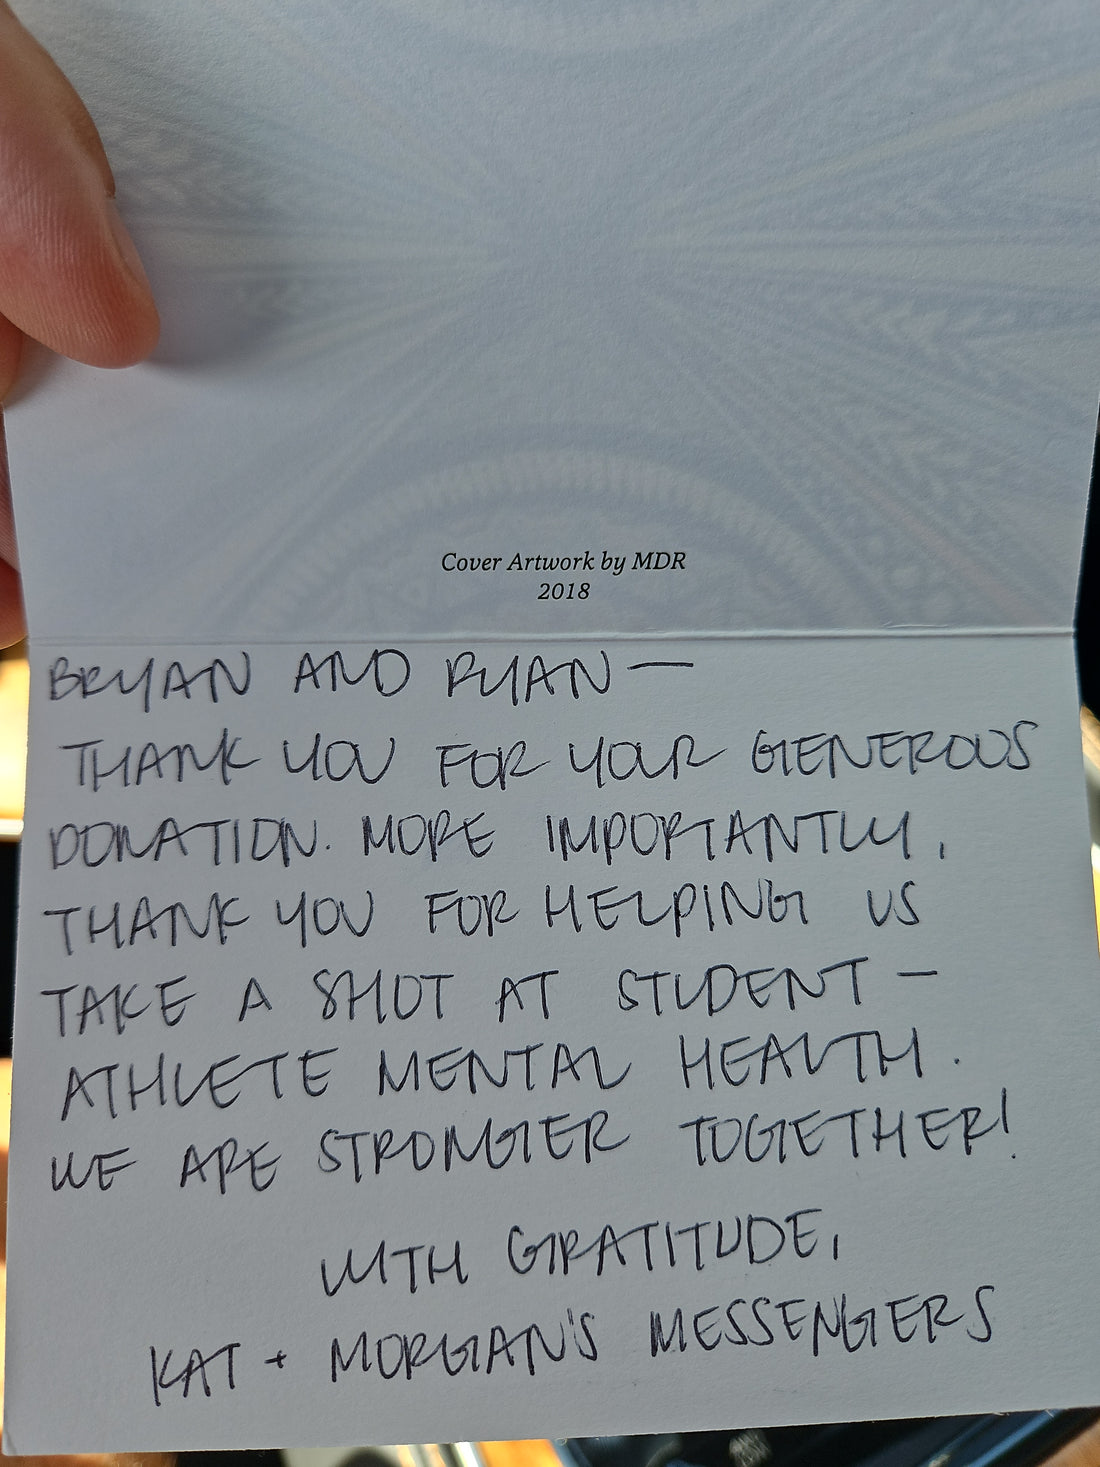 Cover Artwork by MDR
2018
BRYAN AND RYAN —
THANK YOU FOR YOUR GENEROUS
DONATION. MORE IMPORTANTLY,
THANK YOU FOR HELPING US
TAKE A SHOT AT STUDENT -
ATHLETE MENTAL HEALTH.
WE ARE STRONGER TOGETHER!
WITH GRATITUDE,
KAT + MORGAN'S MESSENGERS